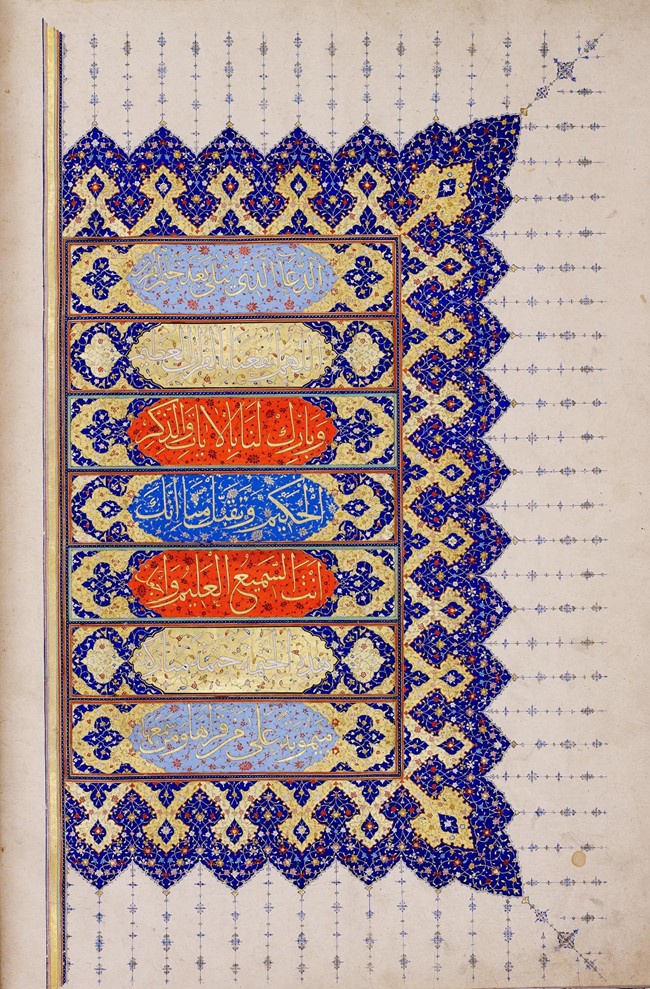 الدعاء الذى يتلى بعد ختم القران
اللهم انفعنا بالقران العظيم
وبارك لنا بالايات والذكر
الحكيم وتقبل منا انك
انت السميع العليم
هذه الختمة ختمة مباركة
ميمونة على من قرأها ومن